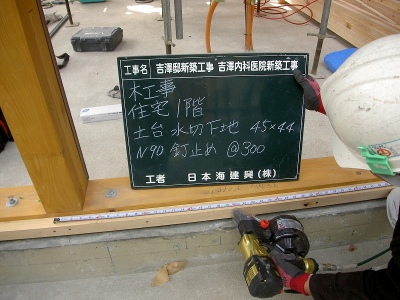 工事名 吉澤邸新築工事 吉澤内科医院新築工事
木工事
住宅 1階
土台 水切下地 45×44
N90 釘止め @300
工者 日本海建興(株)